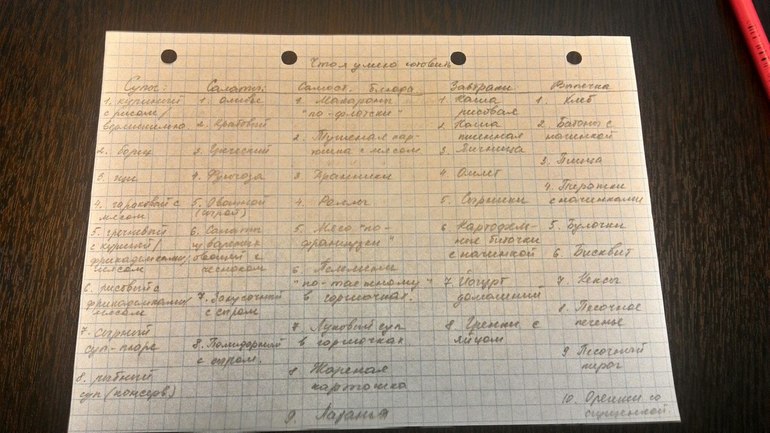 Что я умею готовить
Супы:
1. куриный
с рисом/
вермишелью
2. борщ
3. щи
4. гороховый с
мясом
5. гречневый
с курицей/
фрикадельками/
мясом
6. рисовый с
фрикадельками/
мясом
7. сырный
суп-пюре
8. рыбный
суп (консерв)
Салаты:
1. оливье
2. крабовый
3. греческий
4.
5. Овощной
(сырой)
6. Салаты
из вареных
овощей с
чесноком
7. Закусочный
с сыром
8. Помидорный
с сыром.
Самост. блюда
1. Макароны
"по-флотски"
2. Тушеная кар-
тошка с мясом
3. Драники
4. Роллы
5. Мясо "по-
французски"
6. Пельмени
"по-таежному"
в горшочках.
7. Луковый суп
в горшочках
8 Жареная
картошка
9. Лазанья
Завтраки
1 Каша
рисовая
2. Каша
пшенная
3. Яичница
4 Омлет
5. Сырники
6 Картофель-
ные биточки
с начинкой
7. Йогурт
домашний
8 Гренки с
яйцом
Выпечка
1. Хлеб
2. Батоны с
начинкой
3. Пицца
4. Пирожки
с начинками
5. Булочки
6. Бисквит
7. Кексы
8. Песочное
печенье
9 Песочный
пирог
10. Орешки со
сгущенкой